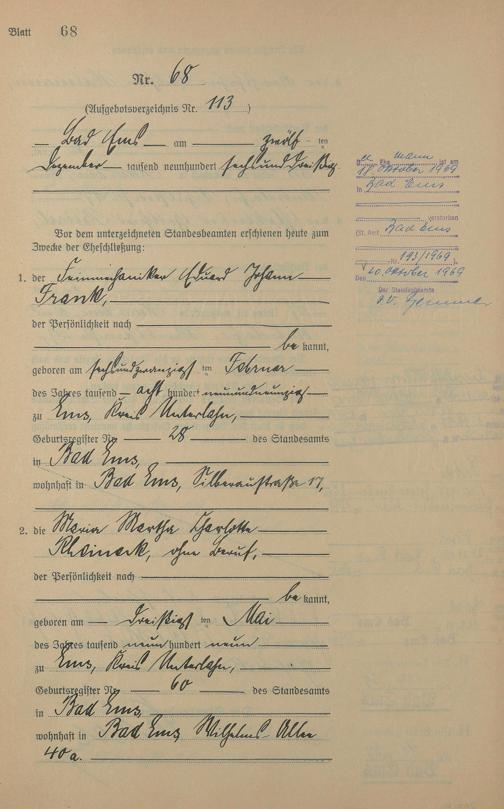 Blatt 68
Nr. 68
(Aufgebotsverzeichnis Nr. 113)
Bad Ems am zwölf ten
Dezember tausend neunhundert sechsunddreißig
Vor dem unterzeichneten Standesbeamten erschienen heute zum
Zwecke der Eheschließung:
1. der Feinmechaniker Eduard Johann
Frank,
der Persönlichkeit nach
be kannt,
geboren am sechsundzwanzigst ten Februar
des Jahres tausend acht hundert neunundneunzig
zu Ems, Kreis Unterlahn,
Geburtsregister Nr. 28 des Standesamts
in Bad Ems,
wohnhaft in Bad Ems, Silberaustraße 17,
2. die Maria Martha Charlotte
Rheineck, ohne Beruf,
der Persönlichkeit nach
be kannt,
geboren am dreißigst ten Mai
des Jahres tausend neun hundert neun
zu Ems, Kreis Unterlahn,
Geburtsregister Nr. 60 des Standesamts
in Bad Ems,
wohnhaft in Bad Ems, Wilhelms-Allee
40a.
Ehe mann ist am
18. Oktober 1969
in Bad Ems
verstorben
(St. Amt Bad Ems
Nr. 193/1969).
Den 20. Oktober 1969
Der Standesbeamte